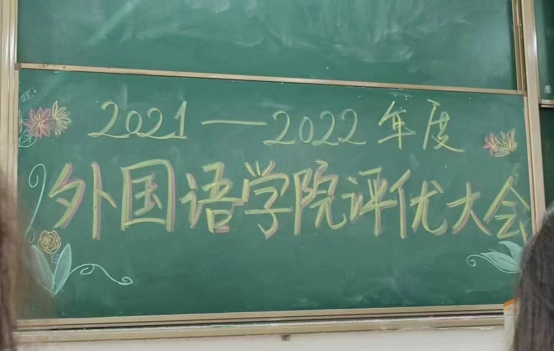 2021—2022年度
外国语学院评优大会